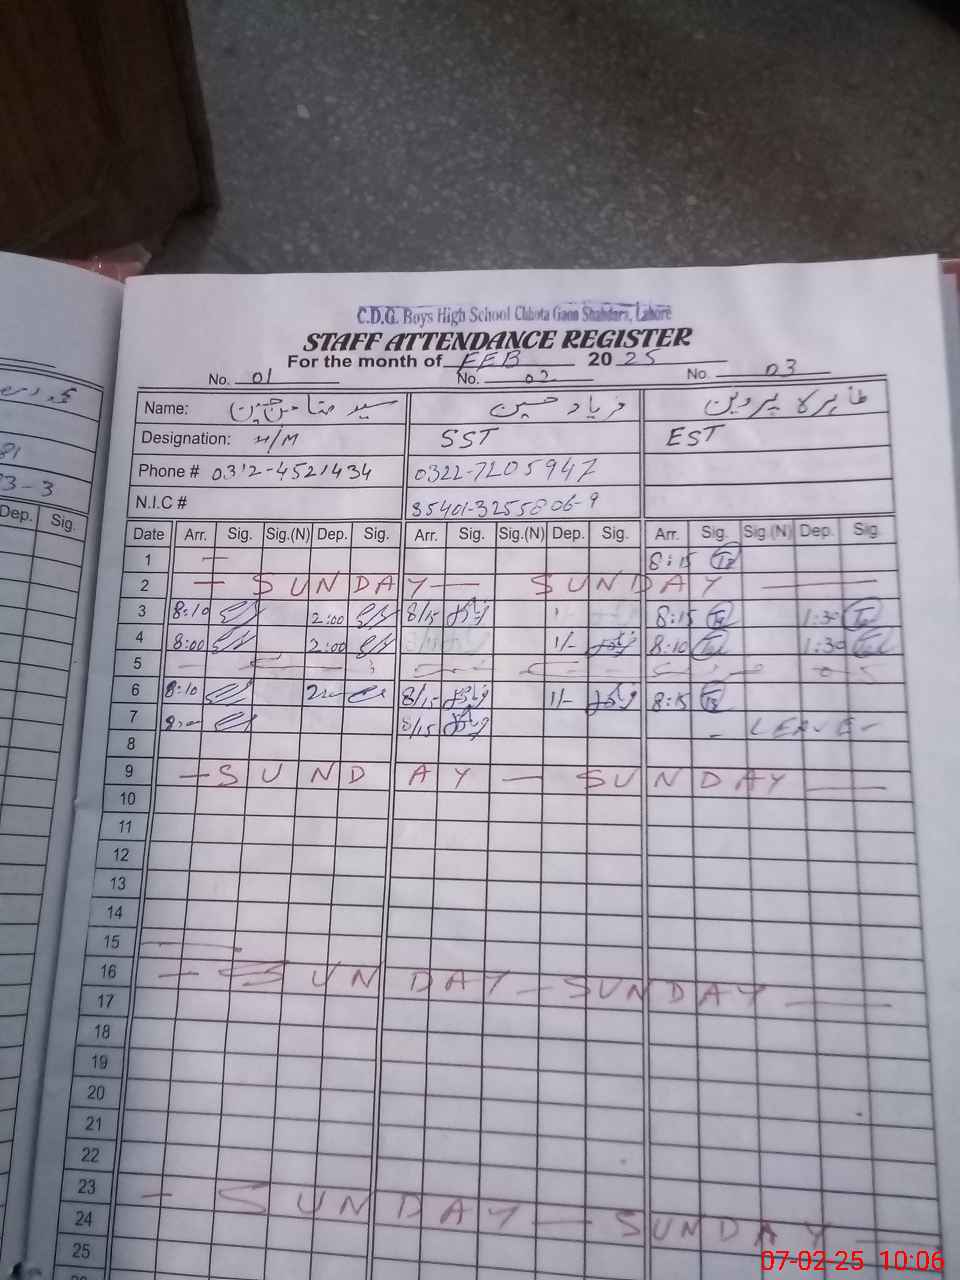 C.D.G. Boys High School Chhota Gaon Shahdara, Lahore
STAFF ATTENDANCE REGISTER
For the month of FEB 2025
No. 01 No. 02 No. 03
Name: سید حسین فریاد حسین طاہرہ پروین
Designation: H/M SST EST
Phone # 0312-4521434 0322-7205947
N.I.C # 35401-3255806-9
Date Arr. Sig. Sig.(N) Dep. Sig. Arr. Sig. Sig.(N) Dep. Sig. Arr. Sig. Sig.(N) Dep. Sig.
1 8:15
2 — SUNDAY — SUNDAY —
3 8:10 2:00 8/15 8:15 1:30
4 8:00 2:00 1/- 8:10 1:30
5
6 8:10 8/15 1/- 8:15
7 8/15 - LEAVE -
8
9 — SUNDAY — SUNDAY —
10
11
12
13
14
15
16 — SUNDAY — SUNDAY —
17
18
19
20
21
22
23 — SUNDAY — SUNDAY —
24
25
Dep. Sig.
07-02-25 10:06